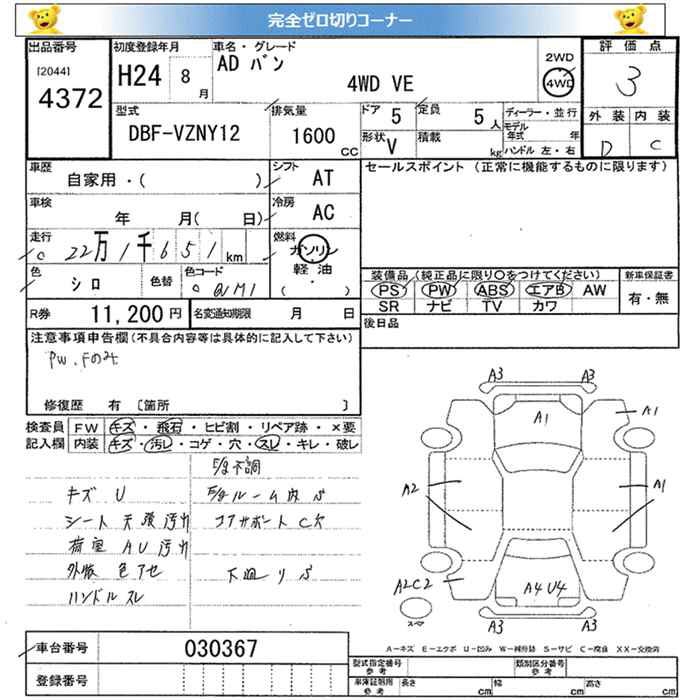 完全ゼロ切りコーナー
出品番号 初度登録年月 車名・グレード 2WD 評価点
[2044] H24 8月 AD バン 4WD 3
4372 4WD VE
型式 排気量 ドア 5 定員 5人 ディーラー・並行 外装 内装
DBF-VZNY12 1600 CC 形状 V 積載 kg モデル年式 年 D C
ハンドル 左・右
車歴 自家用・( ) シフト AT セールスポイント (正常に機能するものに限ります)
車検 年 月( 日) 冷房 AC
走行 22万1千651km 燃料 ガソリン
軽油
( ・ )
色 シロ 色替 色コード QM1 装備品(純正品に限り○をつけてください) 新車保証書
PS PW ABS エアB AW 有・無
R券 11,200円 名変通知期限 月 日 SR ナビ TV カワ
注意事項申告欄(不具合内容等は具体的に記入して下さい) 後日品
PW.Fのみ
修復歴 有 [箇所 ]
検査員 FW キズ・飛石・ヒビ割・リペア跡・×要
記入欄 内装 キズ・汚レ・コゲ・穴・スレ・キレ・破レ
キズ U
シート 天張 汚れ コアサポート C穴
荷室 AU 汚れ
外板 色アセ 下廻りS
ハンドルスレ
A3 A3
A1 A1
A2 A1
A2C2 A4U4
A3 A3
スペア
A-キズ E-エクボ U-凹み W-補修跡 S-サビ C-腐食 XX-交換済
車台番号 030367
登録番号
型式指定番号 参考 類別区分番号 参考
車庫証明用 参考 長さ cm 幅 cm 高さ cm